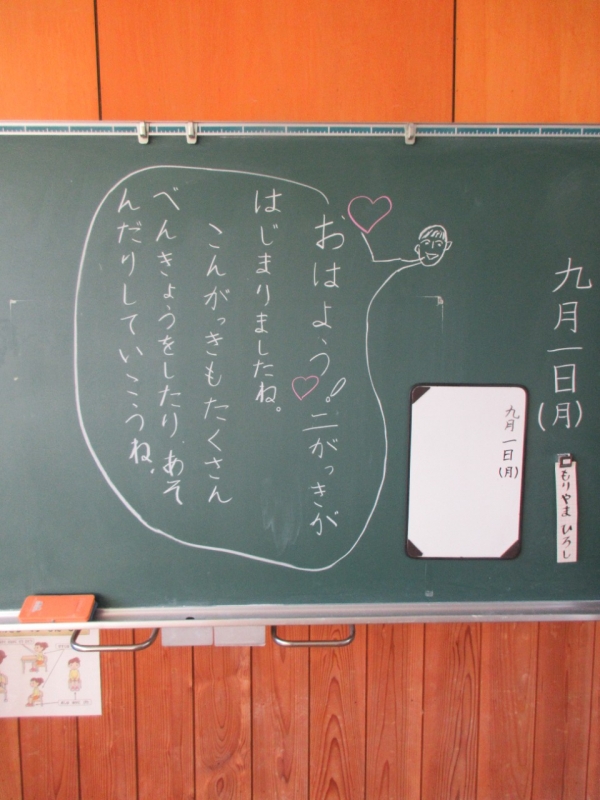 九月一日(月)
もりやま ひろし
九月一日(月)
おはよう!。二がっきが
はじまりましたね。
こんがっきもたくさん
べんきょうをしたり、あそ
んだりしていこうね。